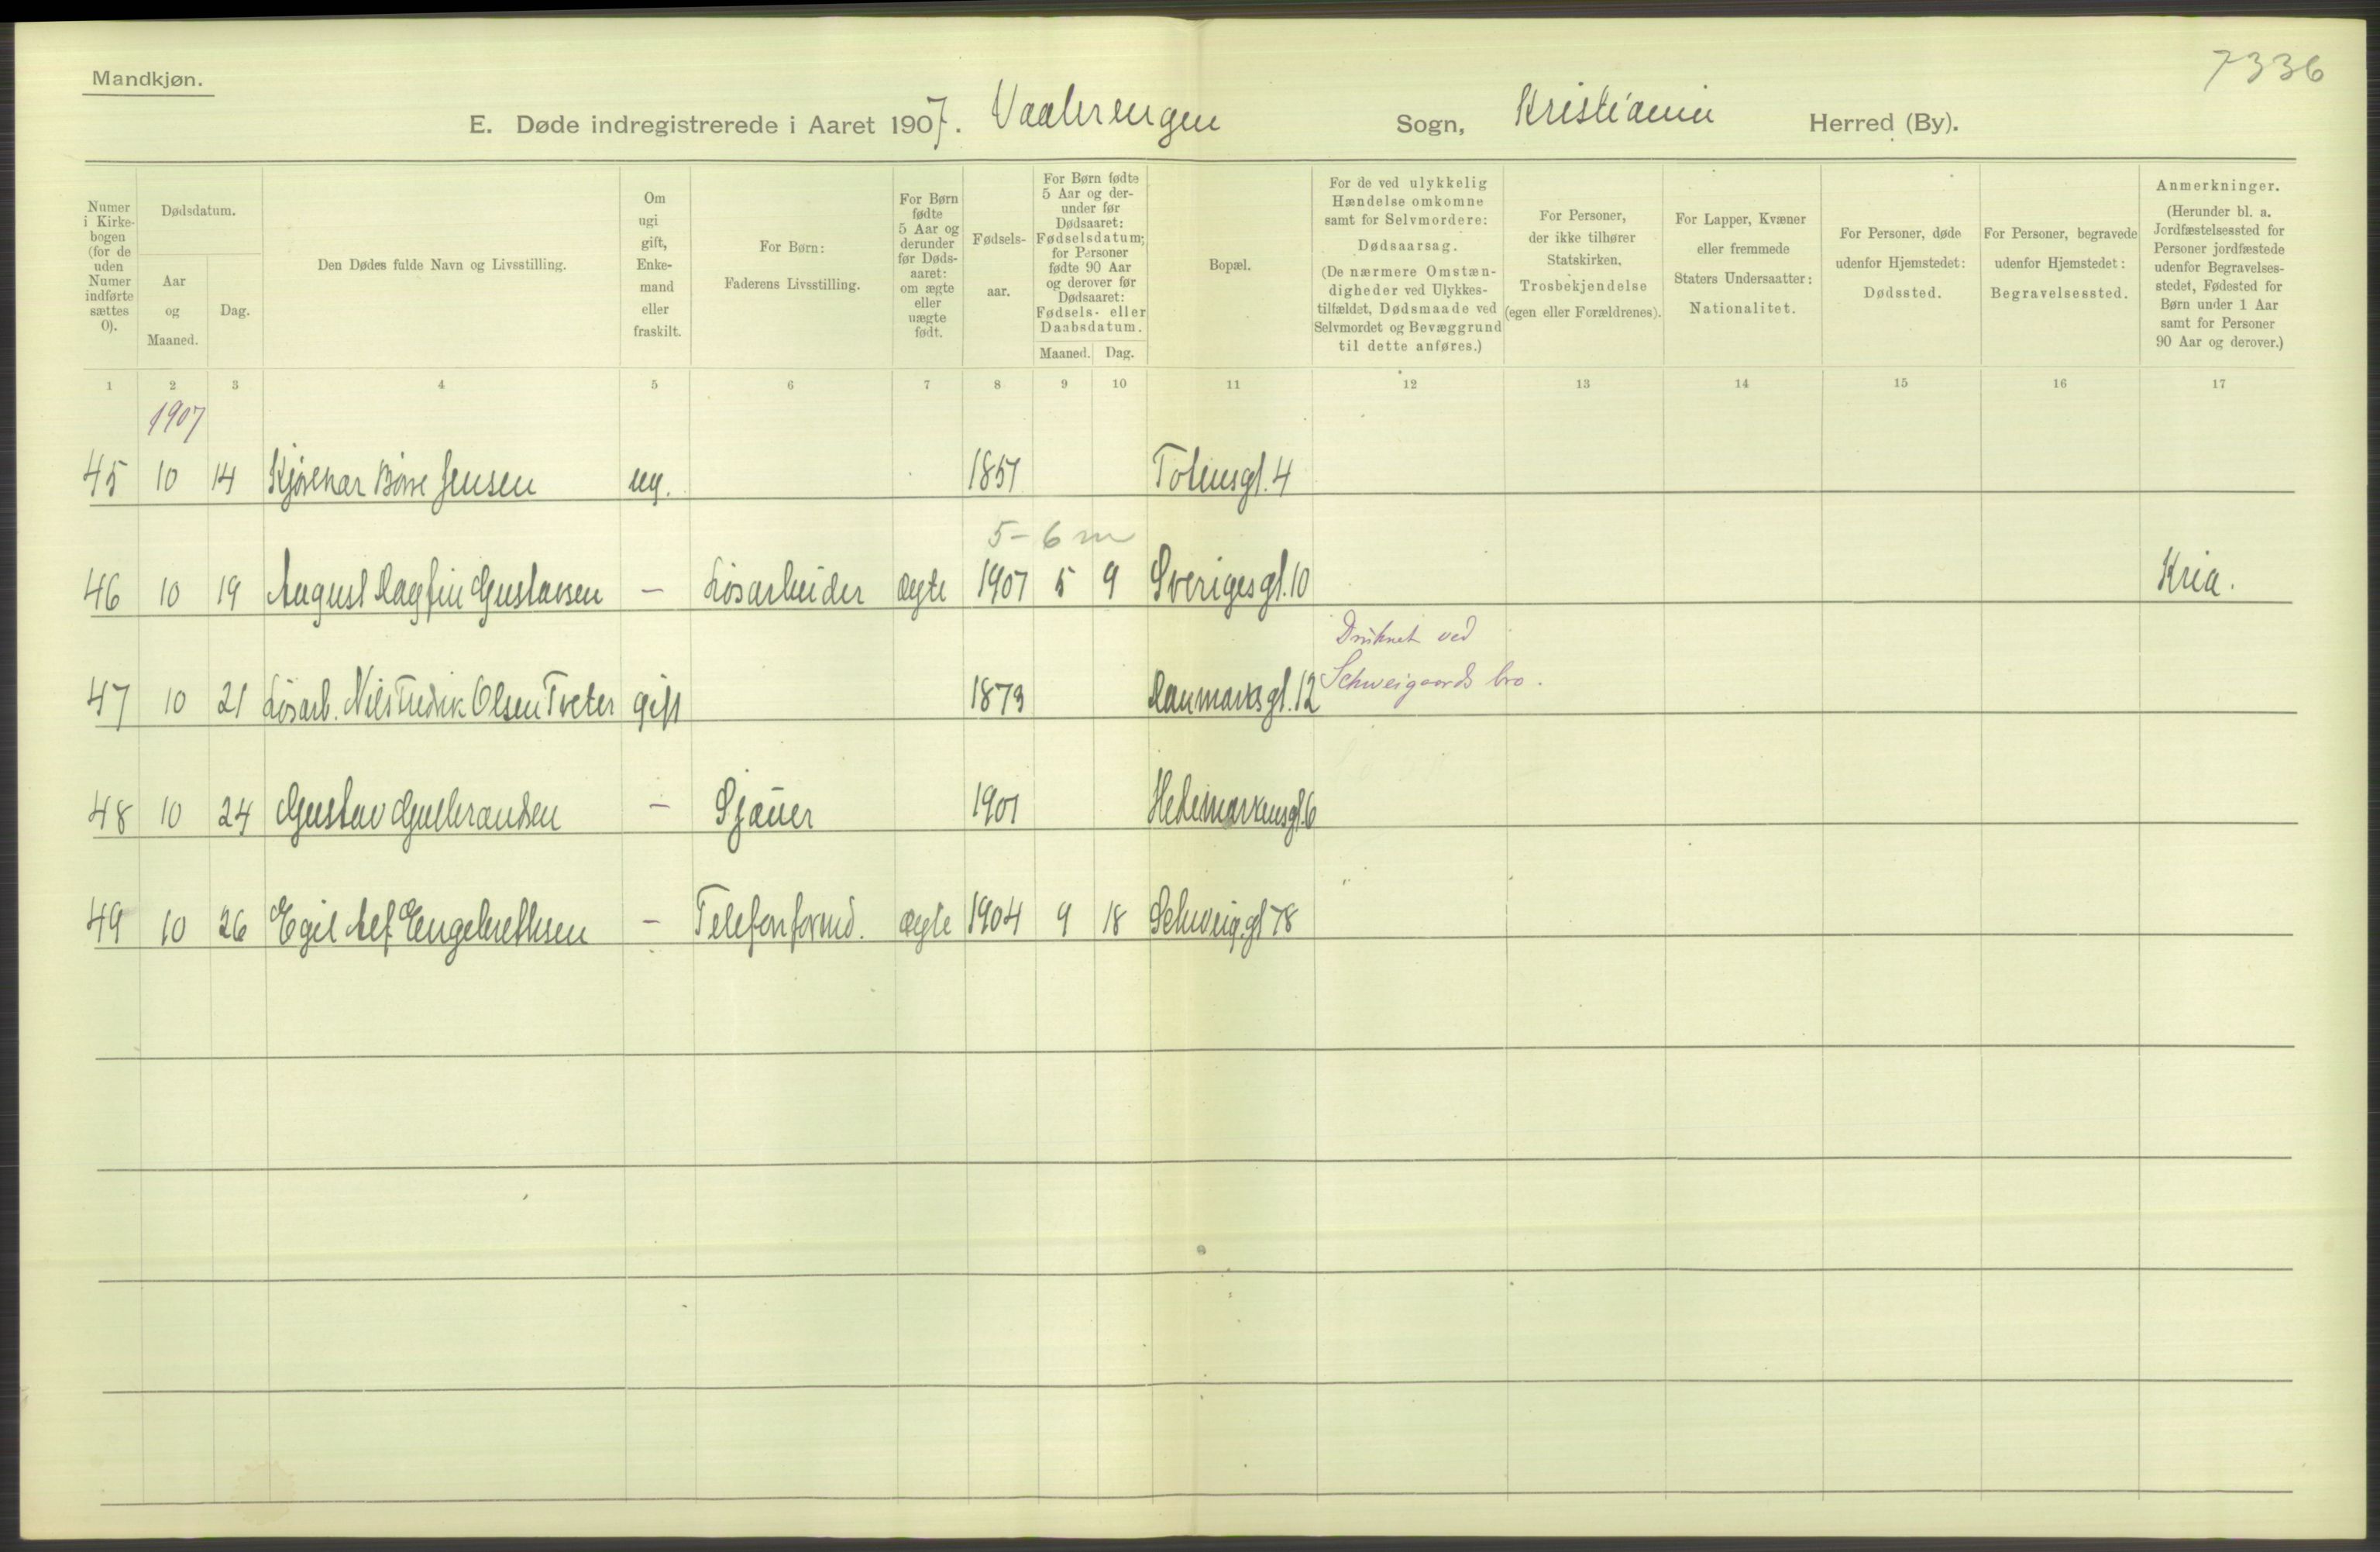 7336
Mandkjøn.
E. Døde indregistrerede i Aaret 1907. Vaalerengen Sogn, Kristiania Herred (By).
Numer i Kirkebogen (for de uden Numer indførte sættes 0).
Dødsdatum.
Aar og Maaned.
Dag.
Den Dødes fulde Navn og Livsstilling.
Om ugi gift, Enkemand eller fraskilt.
For Børn:
Faderens Livsstilling.
For Børn fødte 5 Aar og derunder før Dødsaaret: om ægte eller uægte født.
Fødselsaar.
For Børn fødte 5 Aar og derunder før Dødsaaret: Fødselsdatum; for Personer fødte 90 Aar og derover før Dødsaaret: Fødsels- eller Daabsdatum.
Maaned. Dag.
Bopæl.
For de ved ulykkelig Hændelse omkomne samt for Selvmordere:
Dødsaarsag.
(De nærmere Omstændigheder ved Ulykkestilfældet, Dødsmaade ved Selvmordet og Bevæggrund til dette anføres.)
For Personer, der ikke tilhører Statskirken,
Trosbekjendelse
(egen eller Forældrenes).
For Lapper, Kvæner eller fremmede Staters Undersaatter:
Nationalitet.
For Personer, døde udenfor Hjemstedet:
Dødssted.
For Personer, begravede udenfor Hjemstedet:
Begravelsessted.
Anmerkninger.
(Herunder bl. a. Jordfæstelsessted for Personer jordfæstede udenfor Begravelsesstedet, Fødested for Børn under 1 Aar samt for Personer 90 Aar og derover.)
1 2 3 4 5 6 7 8 9 10 11 12 13 14 15 16 17
1907
45 10 14 Jensen ug. 1857 Tøiensgt. 4
5-6 m
46 10 19 August Dagfin Gustavsen — Løsarbeider ægte 1907 5 9 Sverigesgt. 10 Kria.
Druknet ved
47 10 21 Løsarb. Nils Fredrik Olsen Tveter gift 1879 Danmarksgt. 12 Schweigaards bro.
48 10 24 Gustav Gulbrandsen — Sjauer 1901 Hedemarkensgt. 6
49 10 26 Egil Alf Engebrethsen — Telefonformd. ægte 1904 9 18 Schweig.gt 78